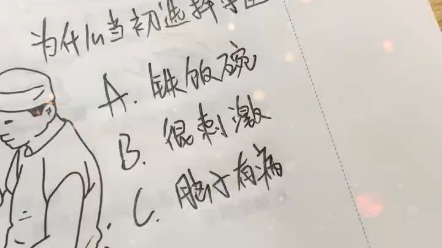 为什么当初选择
A. 铁饭碗
B. 很刺激
C. 脑子有病